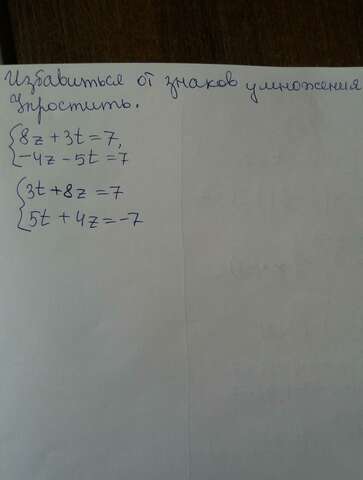 Избавиться от знаков умножения
Упростить.
8z + 3t = 7,
-4z - 5t = 7
3t + 8z = 7
5t + 4z = -7